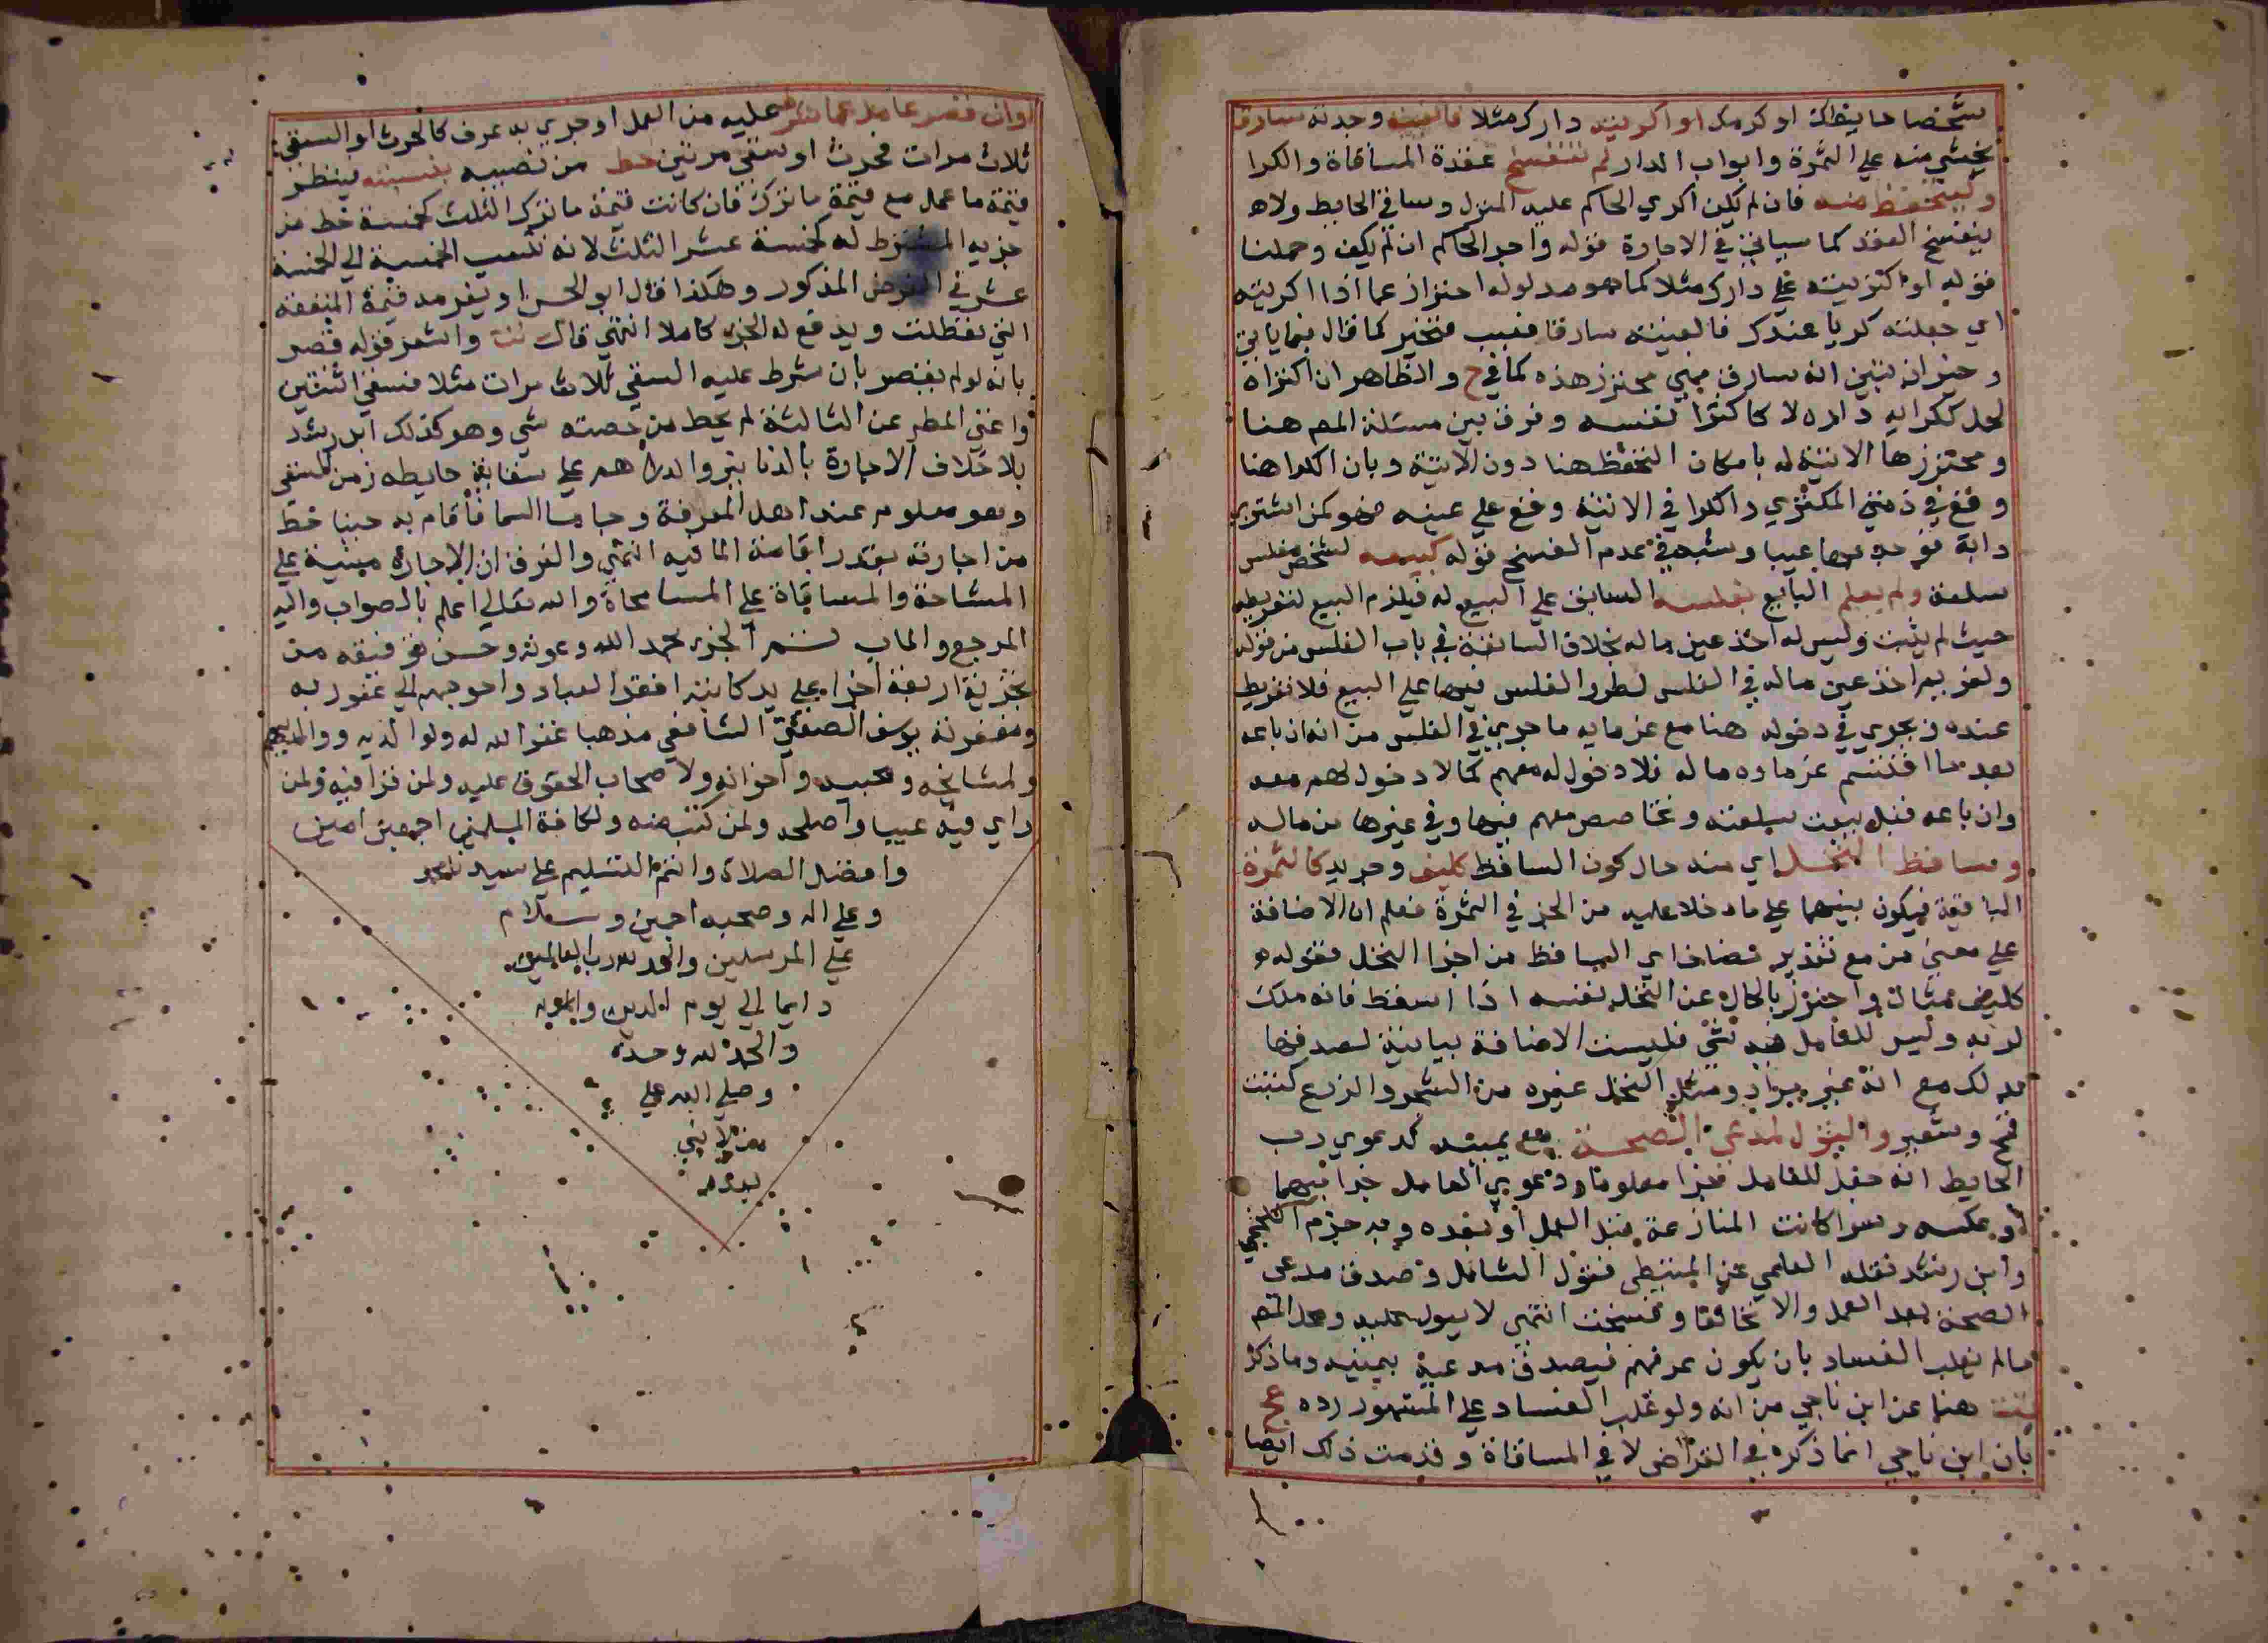 شخصا حايطك او كرمك او اكريته دارك مثلا فالفيته وجدته سارقا
يخشي منه علي الثمرة وابواب الدار لم تنفسخ عقدة المساقاة والكرا
وليتحفظ منه فان لم يكن اكري الحاكم عليه المنزل وساقي الحايط ولا
ينفسخ العقد كما سياتي في الاجارة قوله واجر الحاكم ان لم يكف وحملنا
قوله او اكتريته علي دارك مثلا كما هو مدلوله احتراز عما اذا اكريته
اي جعلته كريا عندك فالفيته سارقا فعيب فتخير كما قال فيما ياتي
وخير ان تبين انه سارق فهي محترز هذه كما في ح والظاهر ان اكتراه
لحل ككرايه داره لا كاكترا نفسه وفرق بين مسئلة المص هنا
ومحترزها الاتية له بامكان التحفظ هنا دون الاتية وبان الكرا هنا
وقع في ذمة المكتري والكرا في الاتية وقع علي عينه فهو كمن اشتري
دابة فوجد بها عيبا وشبه في عدم الفسخ قوله كبيعه لشخص مفلس
سلعة ولم يعلم البايع بفلسه السابق علي البيع له فيلزم البيع لتفريطه
حيث لم يثبت وليس له اخذ عين ماله بخلاف السابقة في باب الفلس من قوله
ولغريم اخذ عين ماله في الفلس لطرو الفلس فيها علي البيع فلا تفريط
عنده ويجري في دخوله هنا مع غرمايه ما جري في الفلس من انه ان باعه
بعد ما اقتسم غرماوه ماله فلا دخول له معهم كما لا دخول لهم معه
وان باعه قبل بيعت سلعته وتحاصص معهم فيها وفي غيرها من ماله
وساقط النخل اي منه حال كون الساقط كليف وجريد كالثمرة
الباقية فيكون بينهما علي ما دخلا عليه من الجز في الثمرة فعلم ان الاضافة
علي معني من مع تقدير مضاف اي الساقط من اجزا النخل فقوله
كليف مثال واحترز بالحال عن النخل نفسه اذا سقط فانه ملك
لربه وليس للعامل فيه شي فليست الاضافة بيانية لصدقها
بذلك مع انه غير مراد ومثل النخل غيره من الشجر والزرع كتبن
قمح وشعير والقول لمدعي الصحة مع يمينه كدعوي رب
الحايط انه جعل للعامل جزا معلوما ودعوي العامل جزا مبهما
او عكسه وسوا كانت المنازعة قبل العمل او بعده وبه جزم اللخمي
وابن رشد فنقله العلمي عن المتيطي فقول الشامل وصدق مدعي
الصحة بعد العمل والا تحالفا وفسخت انتهي لا يعول عليه ومحل المص
مالم يغلب الفساد بان يكون عرفهم فيصدق مدعيه بيمينه وما ذكر
تت هنا عن ابن ناجي من انه ولو غلب الفساد علي المشهور رده عج
بان ابن ناجي انما ذكره في القراض لا في المساقاة وقدمت ذلك ايضا
وان قصر عامل عما شرط عليه من العمل او جري به عرف كالحرث او السقي
ثلاث مرات فحرث او سقي مرتين حط من نصيبه بنسبته فينظر
قيمة ما عمل مع قيمة ما ترك فان كانت قيمة ما ترك الثلث كخمسة حط من
جزيه المشترط له كخمسة عشر الثلث لانه تنسب الخمسة الي الخمسة
عشر في الفرض المذكور وهكذا قال ابو الحسن او يغرمه قيمة المنفعة
التي تعطلت ويدفع له الجز كاملا انتهي قال تت واشعر قوله قصر
بانه لو لم يقصر بان شرط عليه السقي ثلاث مرات مثلا فسقي اثنتين
واغني المطر عن الثالثة لم يحط من حصته شي وهو كذلك ابن رشد
بلا خلاف الاجارة بالدنانير والدراهم علي سقاية حايطه زمن السقي
وهو معلوم عند اهل المعرفة وجا ما السما فاقام به حينا حط
من اجارته بقدر اقامة الما فيه انتهي والفرق ان الاجارة مبنية علي
المشاحة والمساقاة علي المسامحاة والله تعالي اعلم بالصواب واليه
المرجع والماب تم الجزء بحمد الله وعونه وحسن توفيقه من
تجزية اربعة اجزا علي يد كاتبه افقر العباد واحوجهم الي عفو ربه
ومغفرته يوسف الصفتي الشافعي مذهبا غفر الله له ولوالديه ووالديهم
ولمشايخه ومحبيه واخوانه ولاصحاب الحقوق عليه ولمن قرا فيه ولمن
راي فيه عيبا واصلحه ولمن كتب منه ولكافة المسلمين اجمعين امين
وافضل الصلاة واتم التسليم علي سيدنا محمد
وعلي اله وصحبه اجمعين وسلام
علي المرسلين والحمد لله رب العالمين
دايما الي يوم الدين
والحمد لله وحده
وصلي الله علي
من لا نبي
بعده